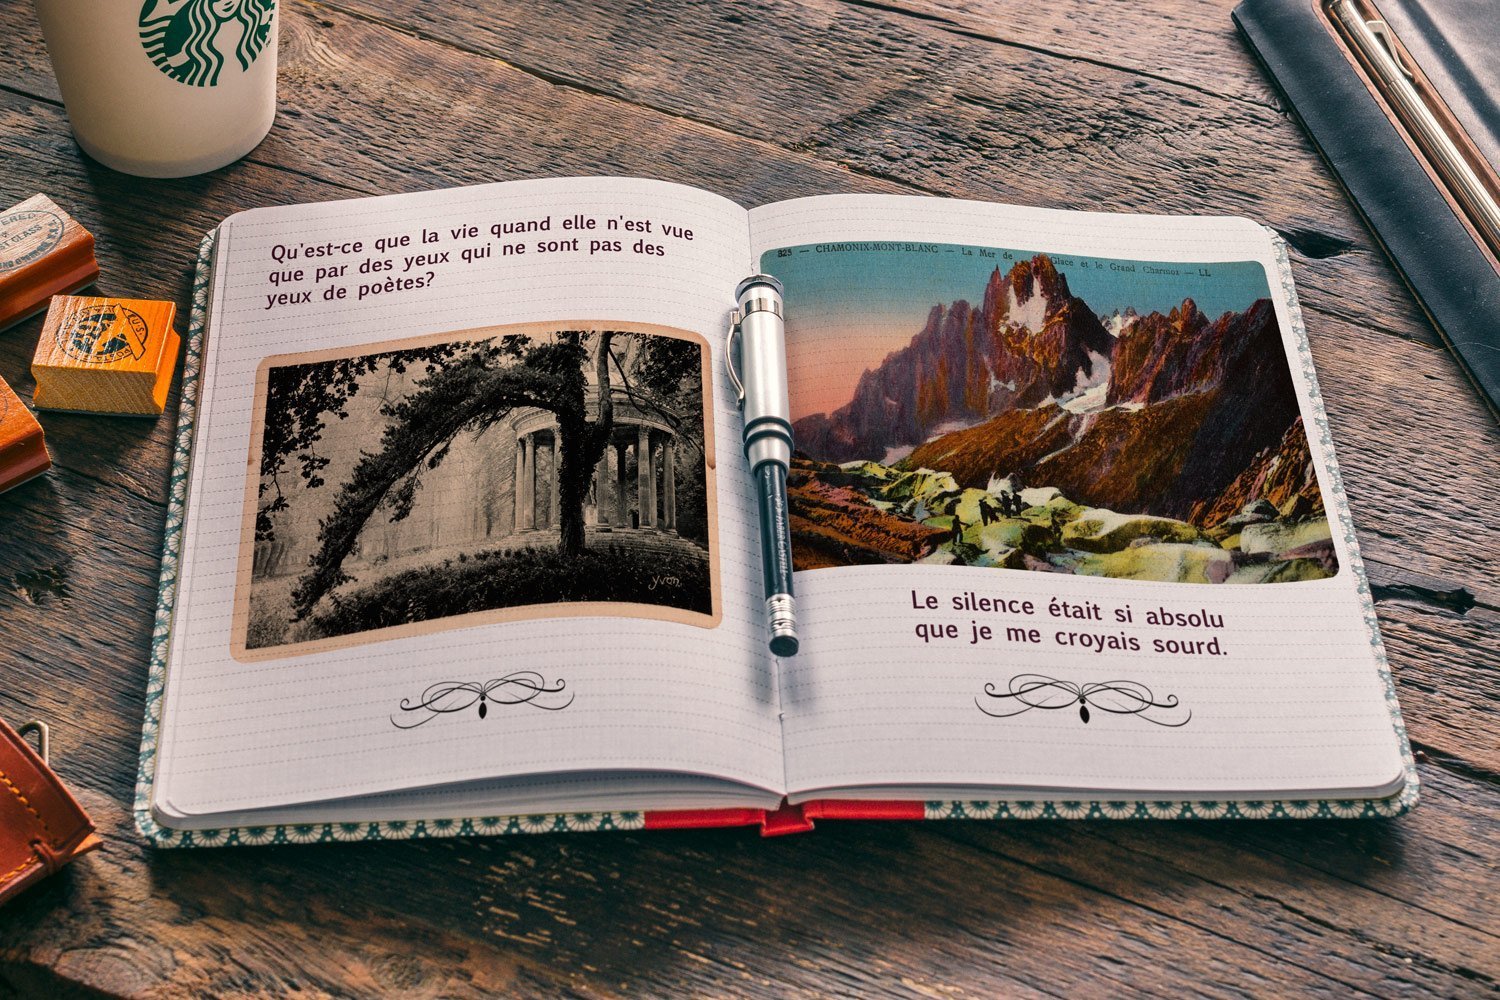 Qu'est-ce que la vie quand elle n'est vue
que par des yeux qui ne sont pas des
yeux de poètes?
yvon
325 — CHAMONIX-MONT-BLANC — La Mer de Glace et le Grand Charmoz — LL
Le silence était si absolu
que je me croyais sourd.